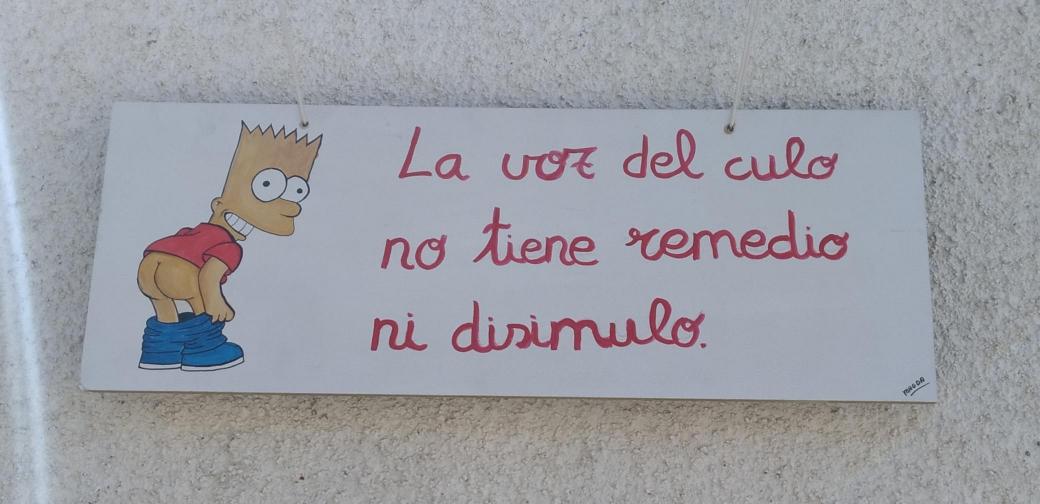 La voz del culo
no tiene remedio
ni disimulo.